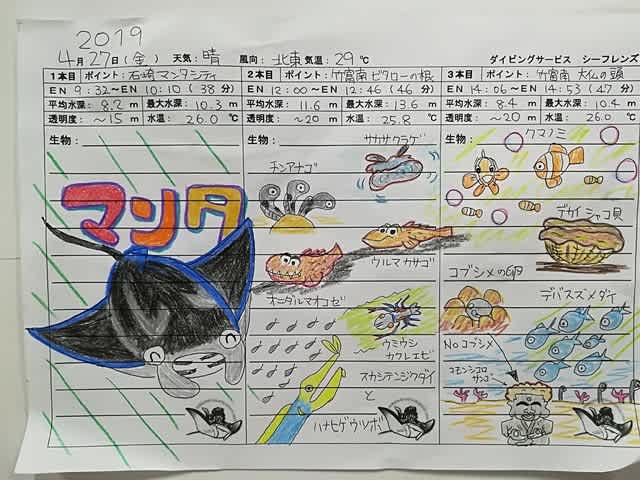 2019
4月27日(金) 天気: 晴 風向: 北東 気温: 29℃ ダイビングサービス シーフレンズ
1本目 ポイント: 石崎マンタシティ
EN 9:32〜EN 10:10 (38分)
平均水深: 8.2 m 最大水深: 10.3 m
透明度: 〜15 m 水温: 26.0 ℃
生物:
マンタ
2本目 ポイント: 竹富南ビタローの根
EN 12:00〜EN 12:46 (46分)
平均水深: 11.6 m 最大水深: 13.6 m
透明度: 〜20 m 水温: 25.8 ℃
生物: サカサクラゲ
チンアナゴ
ウルマカサゴ
オニダルマオコゼ
ウミウシ
カクレエビ
スカシテンジクダイ
と
ハナヒゲウツボ
3本目 ポイント: 竹富南 大仏の頭
EN 14:06〜EN 14:53 (47分)
平均水深: 8.4 m 最大水深: 10.4 m
透明度: 〜20 m 水温: 26.0 ℃
生物: クマノミ
デカイシャコ貝
コブシメの卵
デバスズメダイ
NOコブシメ
コモンシコロ
サンゴ